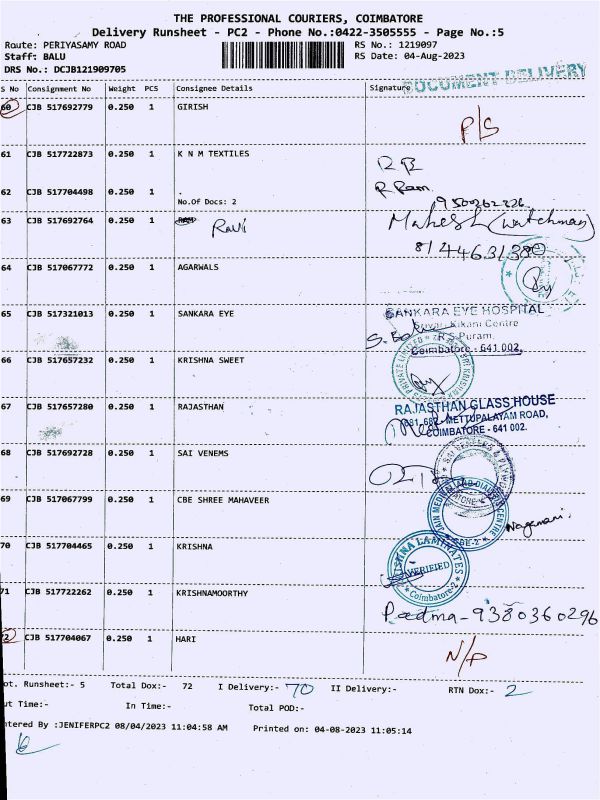 THE PROFESSIONAL COURIERS, COIMBATORE
Delivery Runsheet - PC2 - Phone No.:0422-3505555 - Page No.:5
Route: PERIYASAMY ROAD RS No.: 1219097
Staff: BALU RS Date: 04-Aug-2023
DRS No.: DCJB121909705
DOCUMENT DELIVERY
S No Consignment No Weight PCS Consignee Details Signature
60 CJB 517692779 0.250 1 GIRISH P/S
61 CJB 517722873 0.250 1 K N M TEXTILES
62 CJB 517704498 0.250 1 . R Ram
No.Of Docs: 2
63 CJB 517692764 0.250 1 Ravi Mahesh (watchman)
64 CJB 517067772 0.250 1 AGARWALS
65 CJB 517321013 0.250 1 SANKARA EYE SANKARA EYE HOSPITAL
Kikani Centre
R.S.Puram,
Coimbatore - 641 002.
66 CJB 517657232 0.250 1 KRISHNA SWEET PRIVATE LIMITED
67 CJB 517657280 0.250 1 RAJASTHAN RAJASTHAN GLASS HOUSE
METTUPALAYAM ROAD,
COIMBATORE - 641 002.
68 CJB 517692728 0.250 1 SAI VENEMS
69 CJB 517067799 0.250 1 CBE SHREE MAHAVEER Nagamani
CBE-2
70 CJB 517704465 0.250 1 KRISHNA KRISHNA LAMINATES
VERIFIED
Coimbatore-2
71 CJB 517722262 0.250 1 KRISHNAMOORTHY Padma-9380360296
72 CJB 517704067 0.250 1 HARI N/P
ot. Runsheet:- 5 Total Dox:- 72 I Delivery:- 70 II Delivery:- RTN Dox:- 2
ut Time:- In Time:- Total POD:-
ntered By :JENIFERPC2 08/04/2023 11:04:58 AM Printed on: 04-08-2023 11:05:14